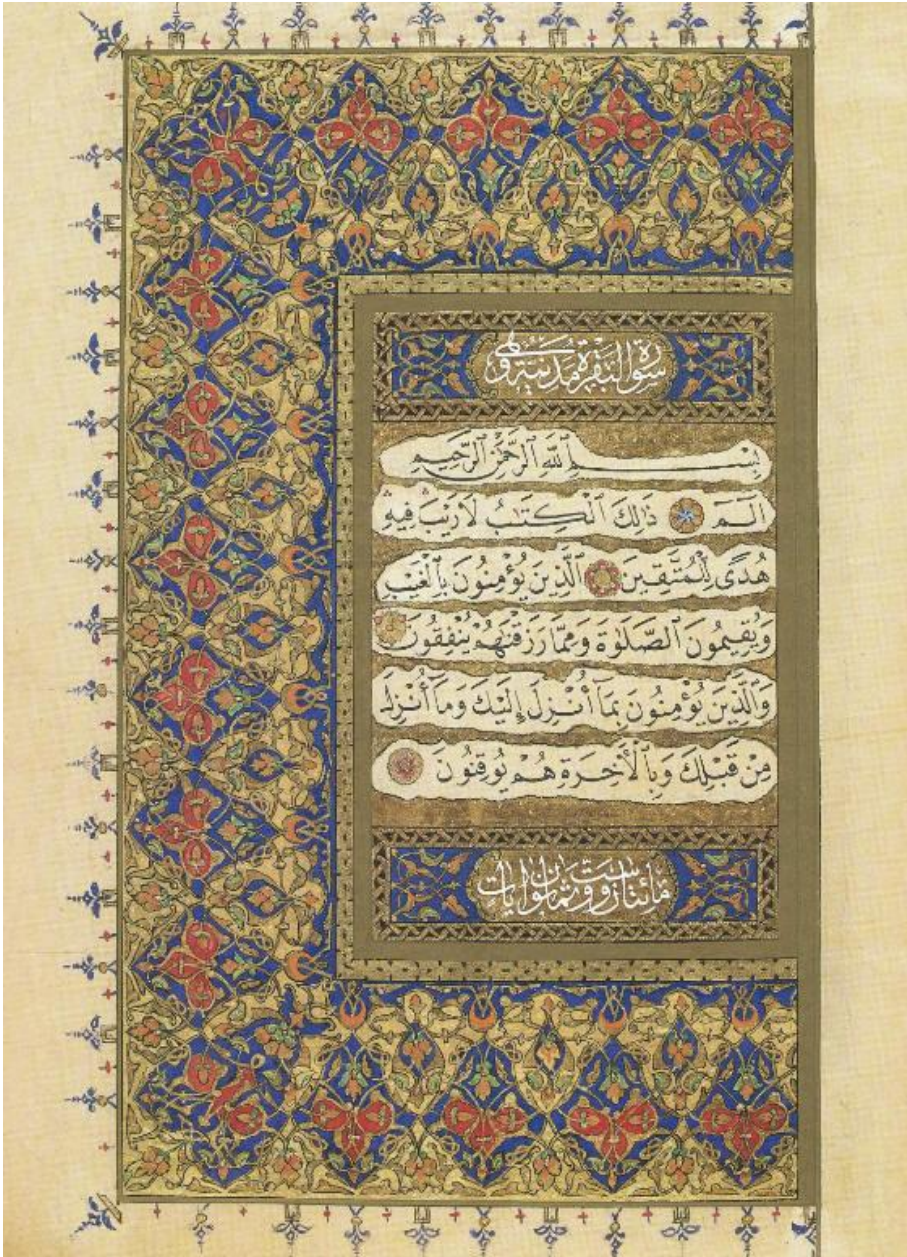 سورة البقرة مدنية وهي
بِسْمِ ٱللَّهِ ٱلرَّحْمَٰنِ ٱلرَّحِيمِ
الٓمٓ ذَٰلِكَ ٱلْكِتَٰبُ لَا رَيْبَ ۛ فِيهِ ۛ
هُدًى لِّلْمُتَّقِينَ ٱلَّذِينَ يُؤْمِنُونَ بِٱلْغَيْبِ
وَيُقِيمُونَ ٱلصَّلَوٰةَ وَمِمَّا رَزَقْنَٰهُمْ يُنْفِقُونَ
وَٱلَّذِينَ يُؤْمِنُونَ بِمَآ أُنْزِلَ إِلَيْكَ وَمَآ أُنْزِلَ
مِنْ قَبْلِكَ وَبِٱلْأَخِرَةِ هُمْ يُوقِنُونَ
مائتان وست وثمانون ايات